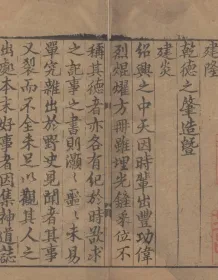 建隆
乾德之肇造暨
建炎
紹興之中天因時輩出豐功偉
烈焜燿方冊雖埋光鏟采位不
稱其德者亦各有紀於時欲求
之記事之書則灝灝噩噩未易
單究雜出於野史見聞者其事
又裂而不全未足以觀其人之
出處本末好事者因集神道誌